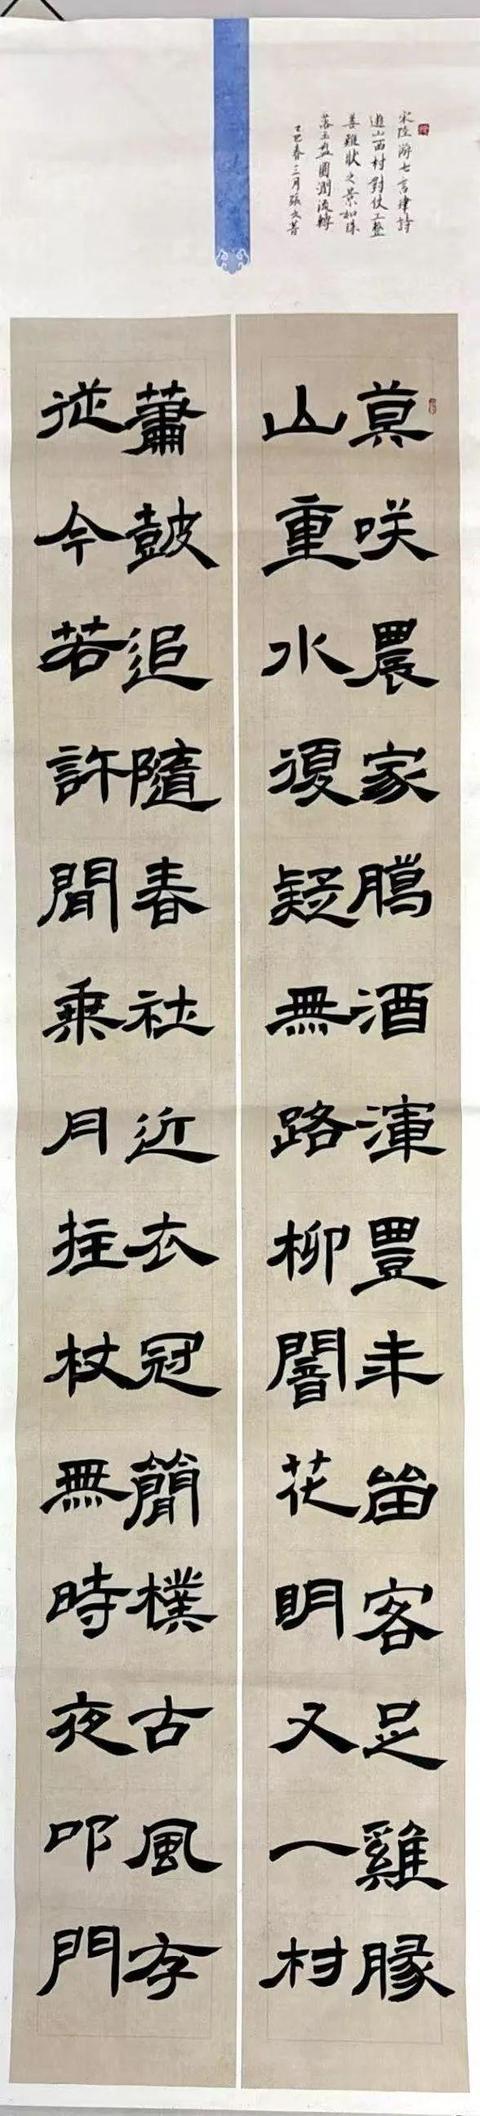 宋陸游七言律詩
遊山西村對仗工整
善難狀之景如珠
落玉盤圓潤流轉
乙巳春三月張文
莫咲農家臈酒渾豊年留客足雞豚
山重水復疑無路柳闇花明又一村
蕭皷追隨春社近衣冠簡樸古風存
從今若許閒乘月拄杖無時夜叩門